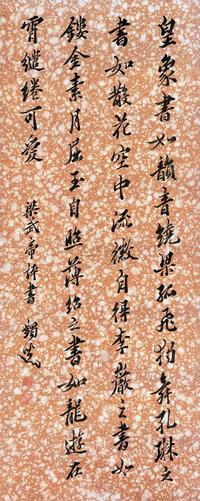 皇象書如韻音繞梁孤飛獨舞孔琳之
書如散花空中流徽自得李巖之書如
鏤金素月屈玉自照薄紹之書如龍遊在
霄繾綣可愛
梁武帝評書